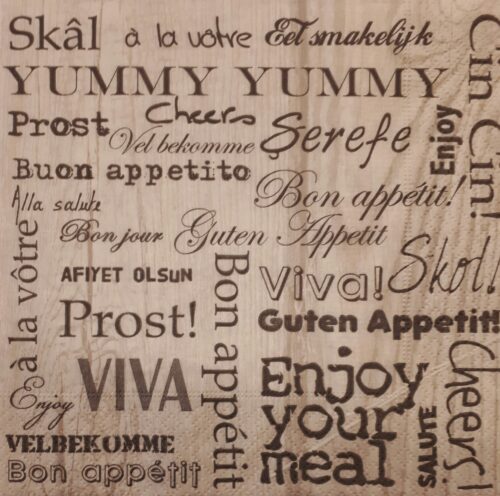 Skâl
à la vôtre
Eet smakelijk
YUMMY YUMMY
Cin Cin!
Prost
Cheers
Vel bekomme
Şerefe
Enjoy
Buon appetito
Bon appétit!
Alla salute
à la vôtre
Bon jour
Guten Appetit
AFIYET OLSUN
Bon appétit
Viva!
Skol!
Prost!
Guten Appetit!
VIVA
Enjoy
your
meal
Cheers!
Enjoy
SALUTE
VELBEKOMME
Bon appétit